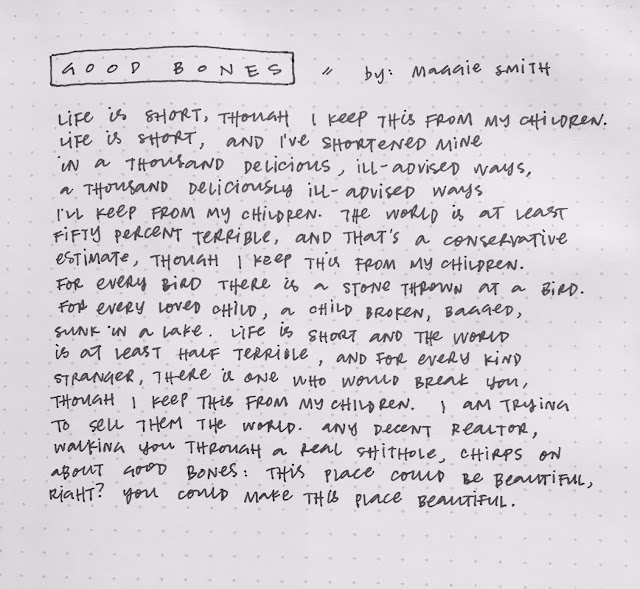 GOOD BONES // by: MAGGIE SMITH
LIFE IS SHORT, THOUGH I KEEP THIS FROM MY CHILDREN.
LIFE IS SHORT, AND I'VE SHORTENED MINE
IN A THOUSAND DELICIOUS, ILL-ADVISED WAYS,
A THOUSAND DELICIOUSLY ILL-ADVISED WAYS
I'LL KEEP FROM MY CHILDREN. THE WORLD IS AT LEAST
FIFTY PERCENT TERRIBLE, AND THAT'S A CONSERVATIVE
ESTIMATE, THOUGH I KEEP THIS FROM MY CHILDREN.
FOR EVERY BIRD THERE IS A STONE THROWN AT A BIRD.
FOR EVERY LOVED CHILD, A CHILD BROKEN, BAGGED,
SUNK IN A LAKE. LIFE IS SHORT AND THE WORLD
IS AT LEAST HALF TERRIBLE, AND FOR EVERY KIND
STRANGER, THERE IS ONE WHO WOULD BREAK YOU,
THOUGH I KEEP THIS FROM MY CHILDREN. I AM TRYING
TO SELL THEM THE WORLD. ANY DECENT REALTOR,
WALKING YOU THROUGH A REAL SHITHOLE, CHIRPS ON
ABOUT GOOD BONES: THIS PLACE COULD BE BEAUTIFUL,
RIGHT? YOU COULD MAKE THIS PLACE BEAUTIFUL.